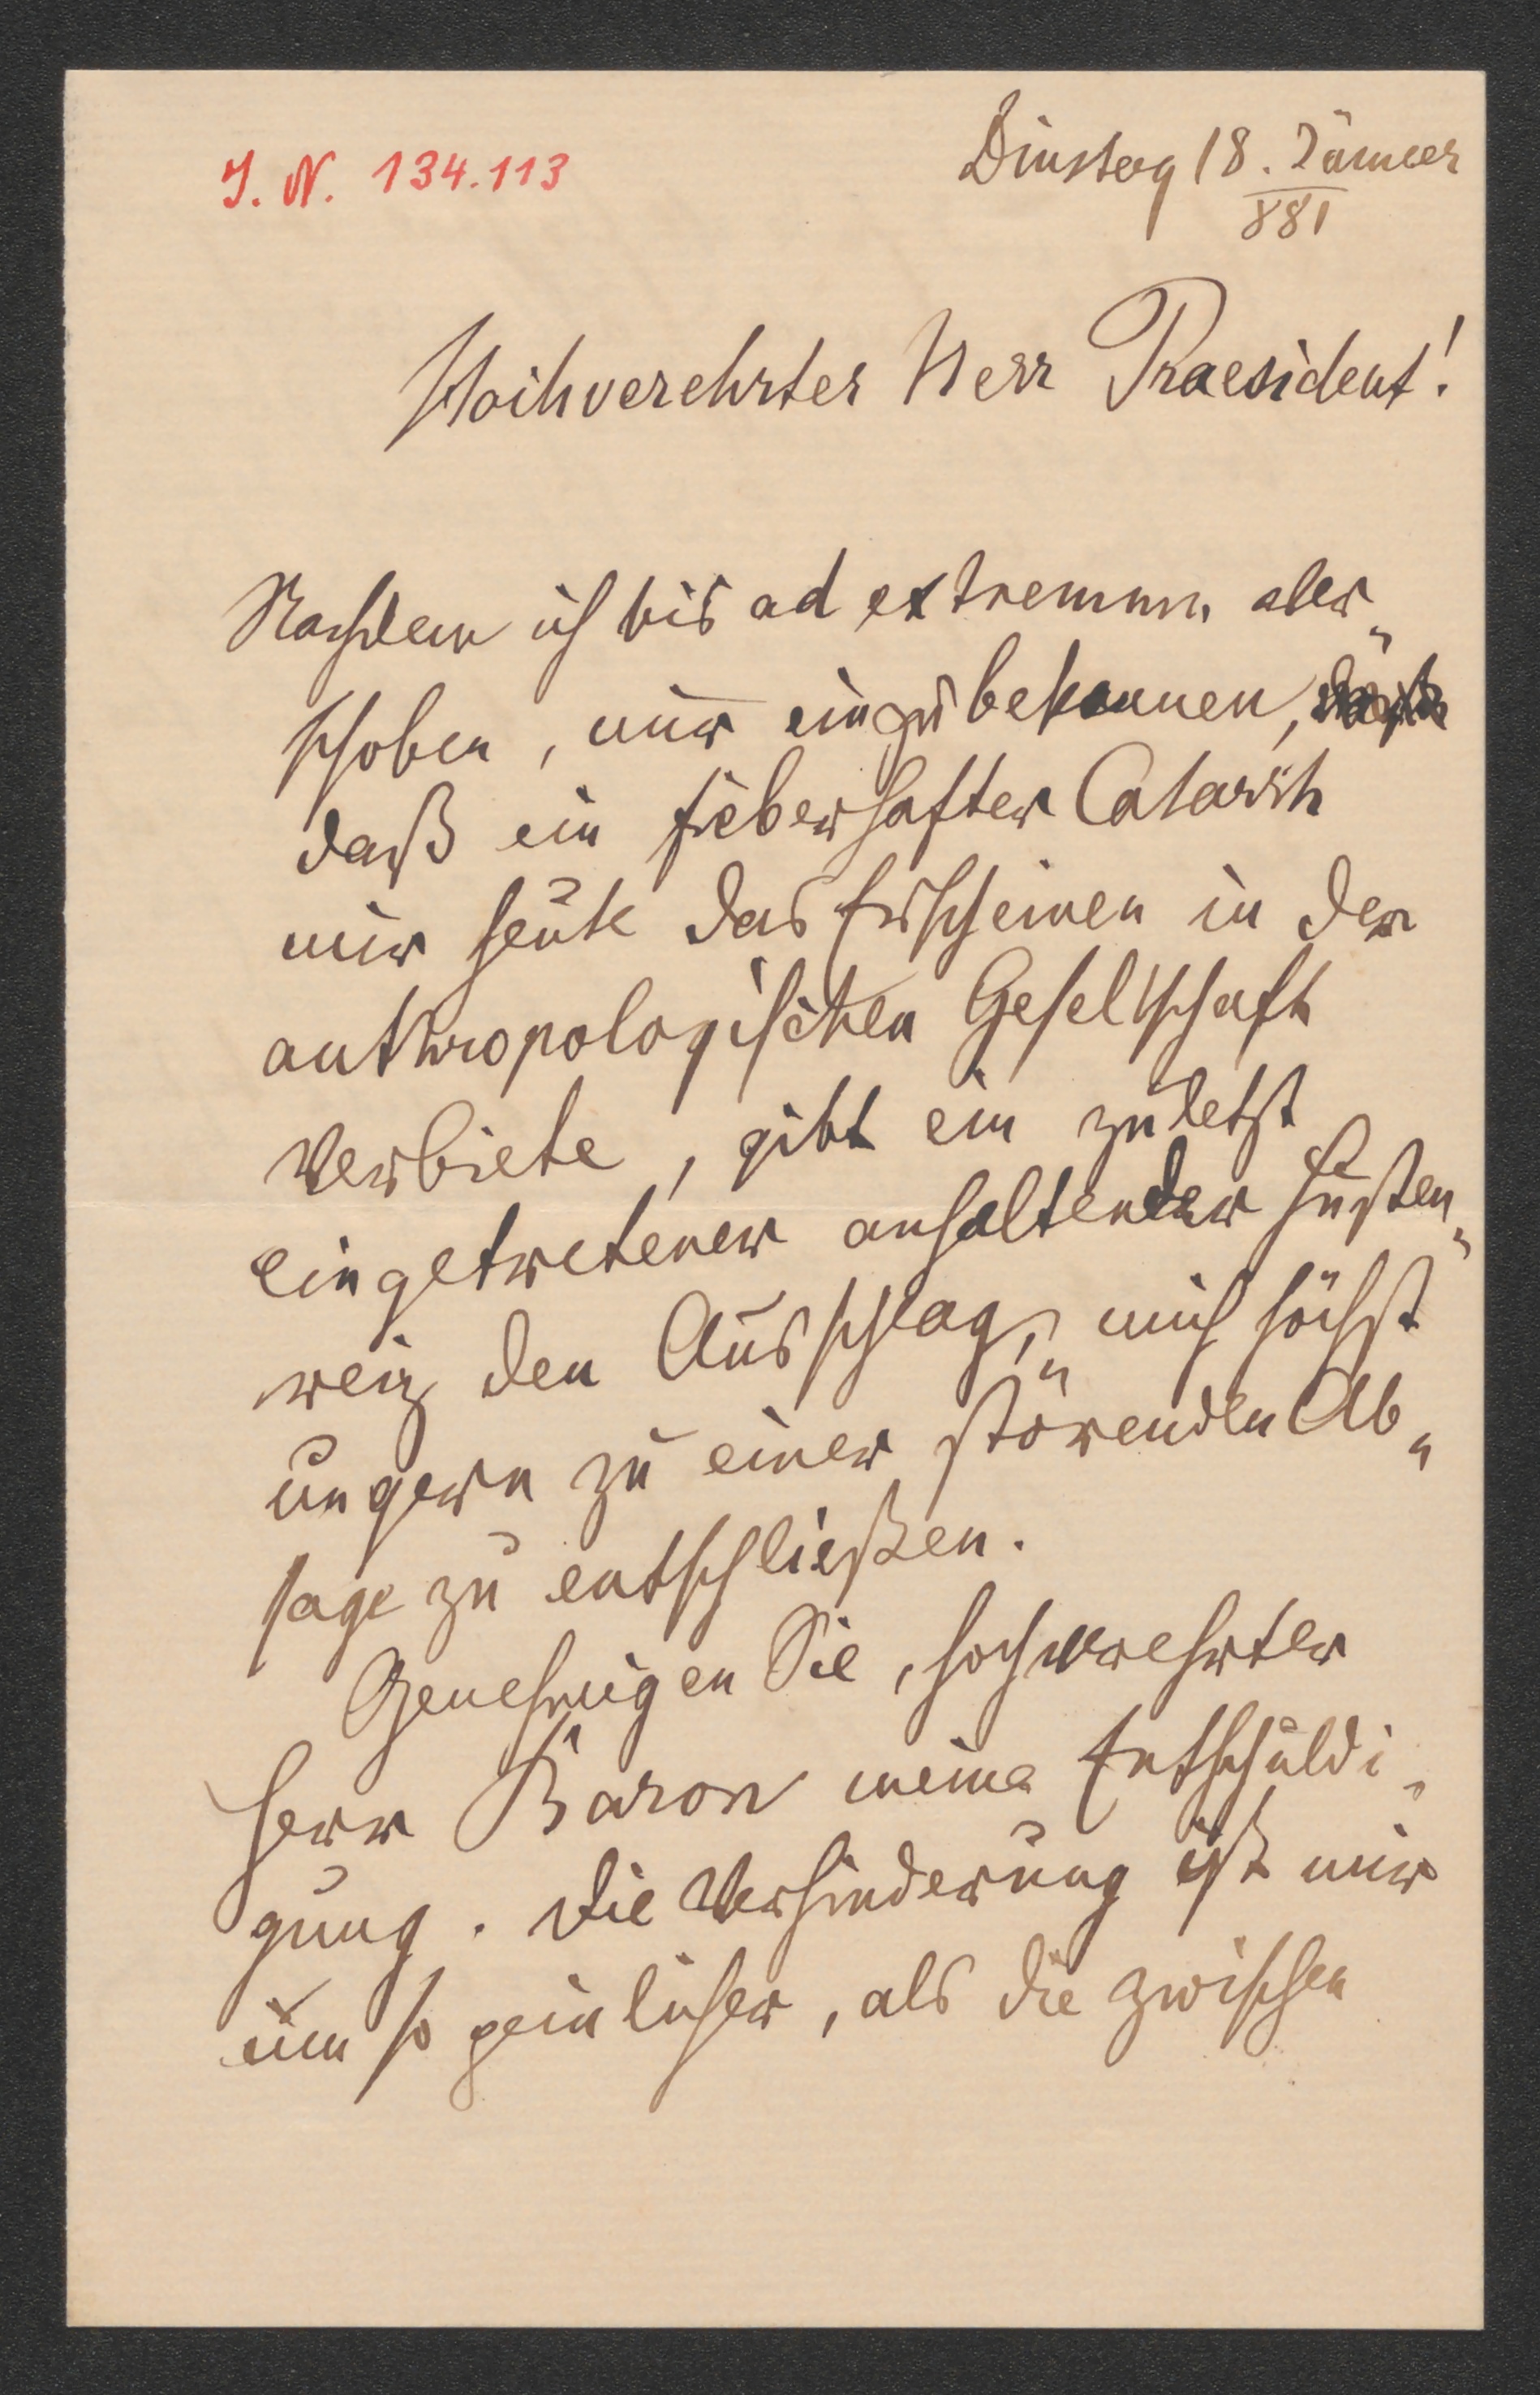 J. N. 134.113
Dinstag 18. Jänner
881
Hochverehrter Herr Praesident!
Nachdem ich bis ad extremum
schoben, mir einzubekennen,
daß ein fieberhafter Catarrh
mir heute das Erscheinen in der
anthropologischen Gesellschaft
verbiete, gibt ein zuletzt
eingetretener anhaltender Husten„
reiz den Ausschlag, mich höchst
ungern zu einer störenden Ab„
sage zu entschließen.
Genehmigen Sie, hochverehrter
Herr Baron meine Entschuldi„
gung. Die Verhinderung ist mir
um so peinlicher, als die zwischen